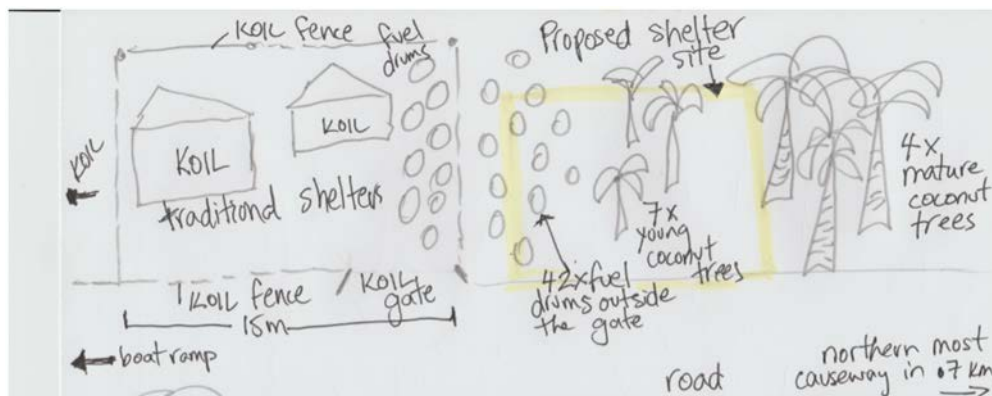 KOIL fence
fuel
drums
Proposed shelter
site
KOIL
KOIL
KOIL
traditional shelters
4x
mature
coconut
trees
7x
young
coconut
trees
42x fuel
drums outside
the gate
KOIL fence
KOIL
gate
15m
boat ramp
road
northern most
causeway in .7 km